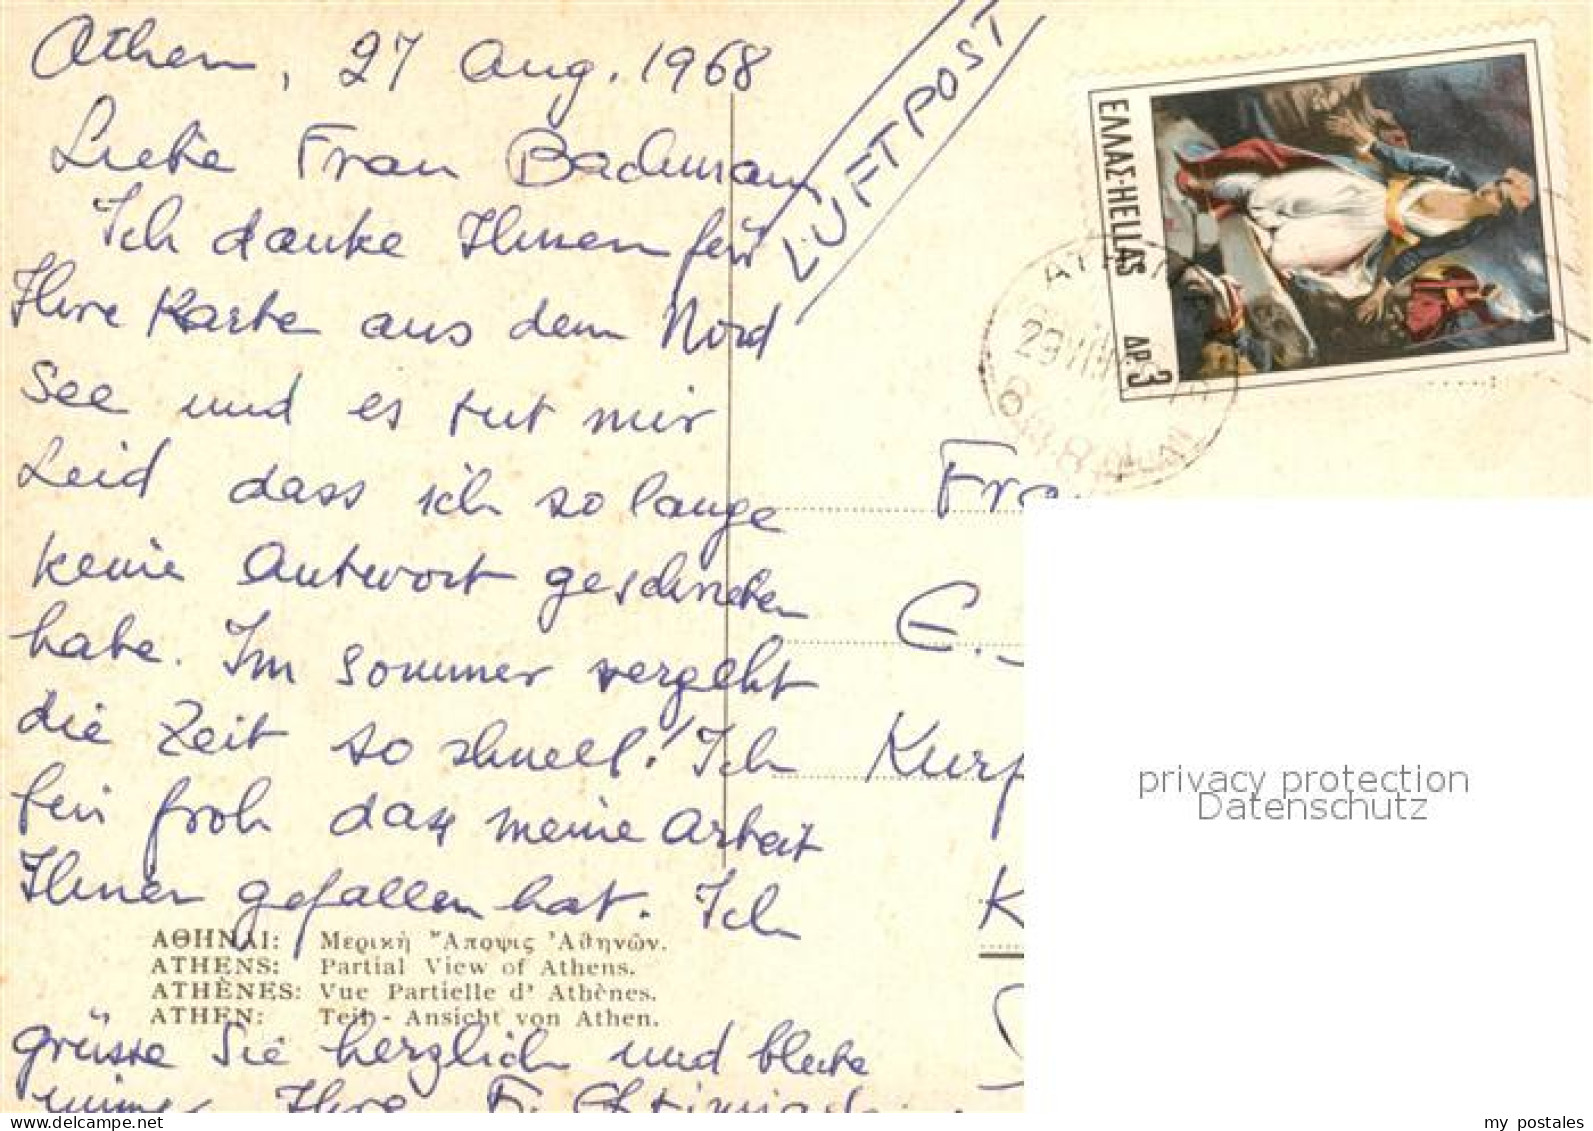 Athen, 27 Aug. 1968
LUFTPOST
Liebe Frau Bachmann
Ich danke Ihnen für
Ihre Karte aus dem Nord
See und es tut mir
Leid dass ich so lange
keine Antwort geschrieben
habe. Im Sommer vergeht
die Zeit so schnell! Ich
bin froh dass meine Arbeit
Ihnen gefallen hat. Ich
ΑΘΗΝΑΙ: Μερικὴ Ἄποψις Ἀθηνῶν.
ATHENS: Partial View of Athens.
ATHÈNES: Vue Partielle d' Athènes.
ATHEN: Teil - Ansicht von Athen.
grüsse Sie herzlich und bleibe
immer Ihre F.
ΕΛΛΑΣ·HELLAS ΔΡ. 3
29 VIII
Fra
E.
Kurf
K
privacy protection
Datenschutz
www.delcampe.net
my_postales